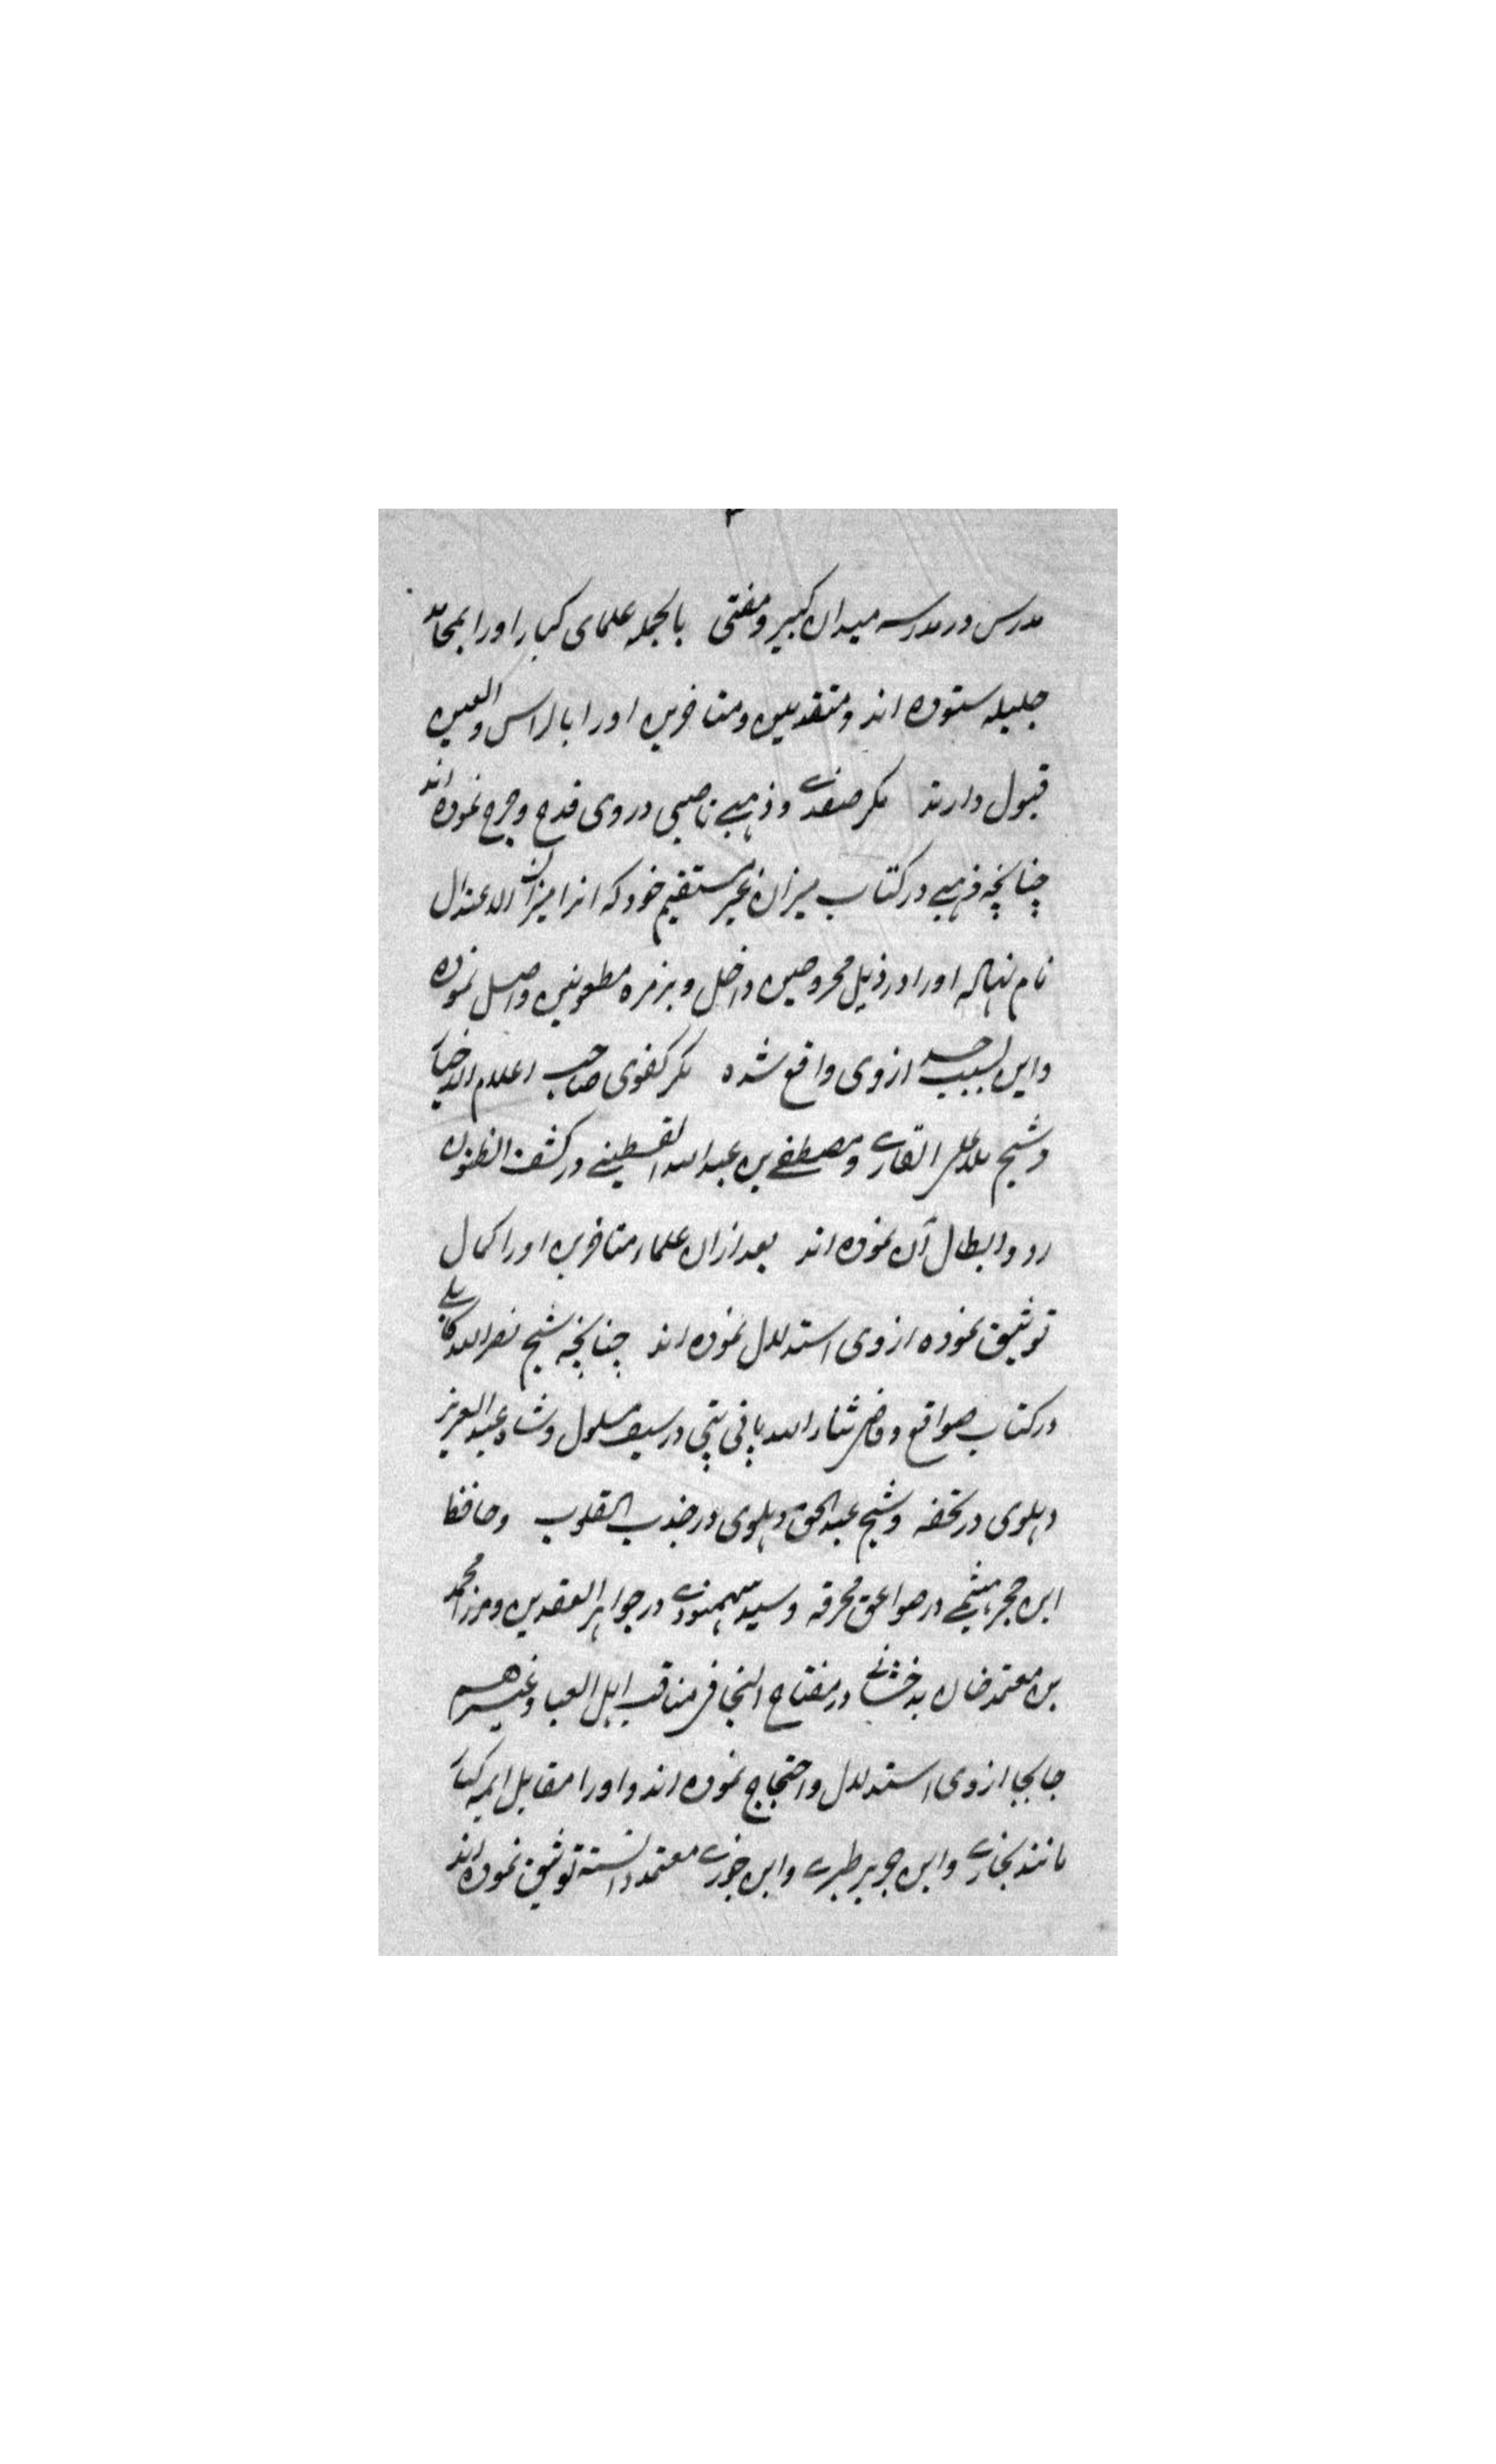 مدرس در مدرسه میدان کبیر و مفتی بالجمله علمای کبار اورا بمحامد
جلیله ستوده اند و متقدمین و متاخرین اورا بالراس والعین
قبول دارند مکر صفدی و ذهبی ناصبی در وی قدح و جرح نموده اند
چنانچه ذهبی در کتاب میزان غیر مستقیم خود که انرا میزان الاعتدال
نام نهاده اورا در ذیل مجروحین داخل و بزمره مطعونین واصل نموده
و این بسبب حسد از وی واقع شده مکر کفوی صاحب اعلام الاخیار
و شیخ ملا علی القاری و مصطفی بن عبدالله القسطنطینی در کشف الظنون
رد و ابطال آن نموده اند بعد ازان علماء متاخرین اورا کمال
توثیق نموده از وی استدلال نموده اند چنانچه شیخ نصرالله کابلی
در کتاب صواقع و قاضی ثناء الله پانی پتی در سیف مسلول و شاه عبدالعزیز
دهلوی در تحفه و شیخ عبدالحق دهلوی در جذب القلوب و حافظ
ابن حجر هیثمی در صواعق محرقه و سید سمهودی در جواهر العقدین و مرزا محمد
بن معتمد خان بدخشانی در مفتاح النجا فی مناقب اهل العبا و غیرهم
جابجا از وی استدلال و احتجاج نموده اند و اورا مقابل ایمه کبار
مانند بخاری و ابن جریر طبری و ابن جوزی معتمد دانسته توثیق نموده اند